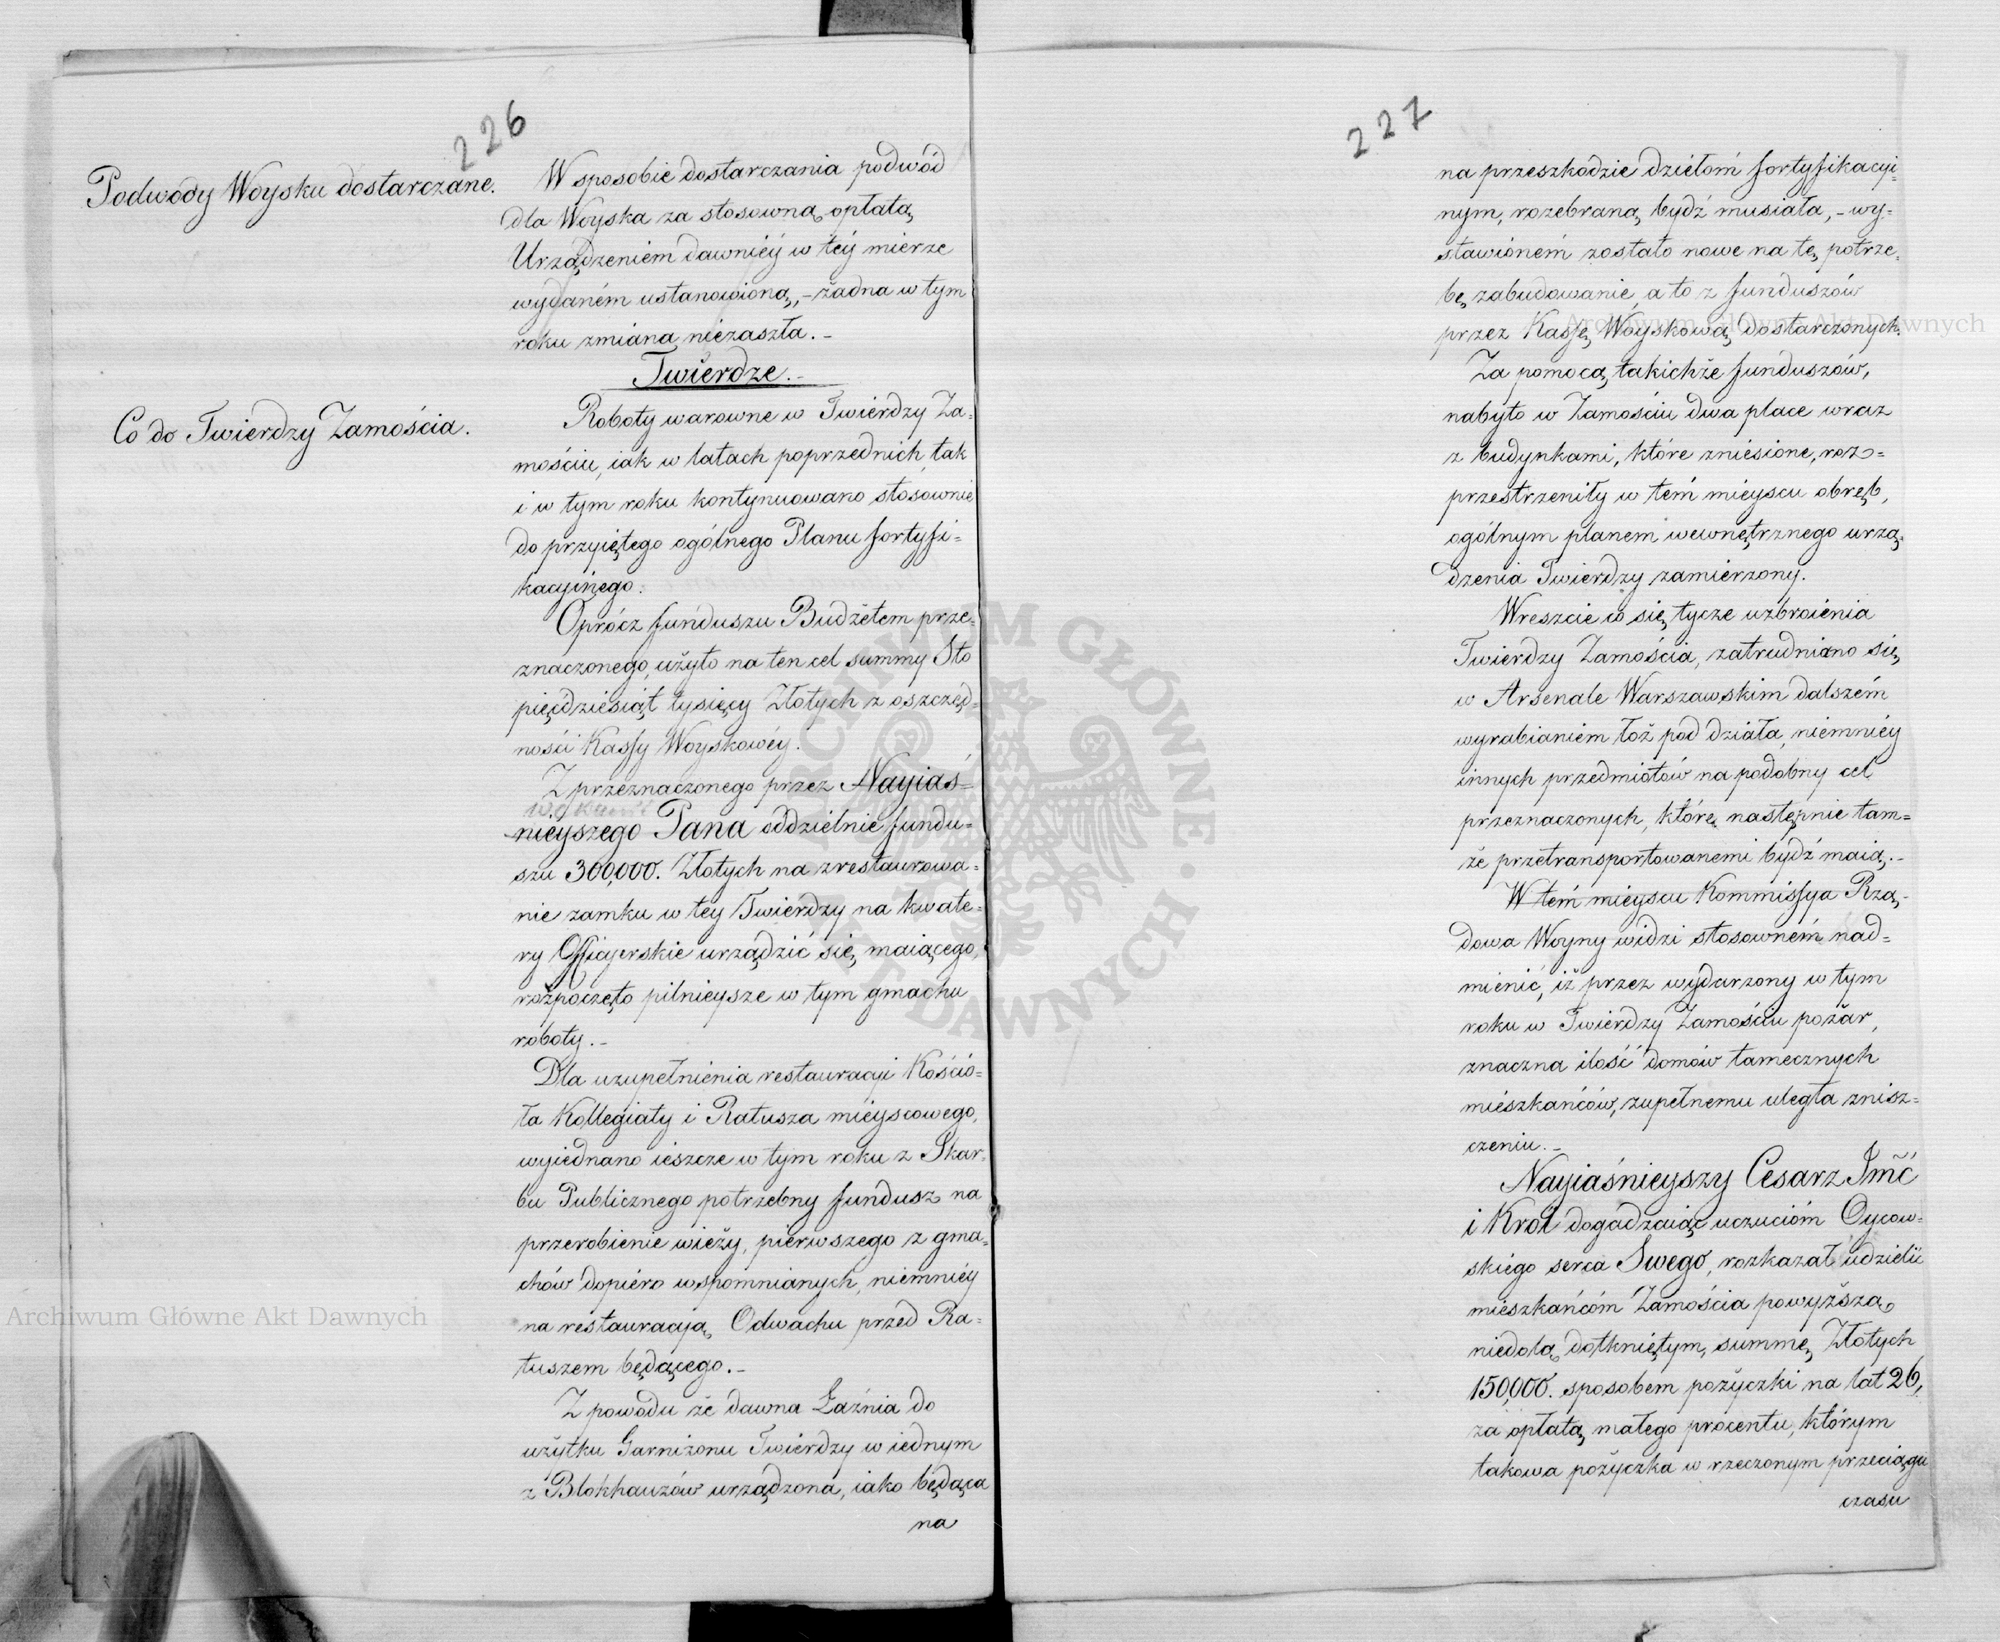 226
Podwody Woysku dostarczane.
W sposobie dostarczania podwód
dla Woyska za stosowną opłatą
Urządzeniem dawniéy w téy mierze
wydaném ustanowioną, – żadna w tym
roku zmiana niezaszła. –
Twierdze. –
Co do Twierdzy Zamościa.
Roboty warowne w Twierdzy Za=
mościu, iak w latach poprzednich, tak
i w tym roku kontynuowano stosownie
do przyiętego ogólnego Planu fortyfi=
kacyinego:
Oprócz funduszu Budżetem prze=
znaczonego, użyto na ten cel summy Sto
pięćdziesiąt tysięcy Złotych z oszczęd=
ności Kassy Woyskowéy.
Z przeznaczonego przez Nayiaś=
nieyszego Pana oddzielnie fundu=
szu 300,000. Złotych na zrestaurowa=
nie zamku w tey Twierdzy na kwate=
ry Officyerskie urządzić się maiącego,
rozpoczęto pilnieysze w tym gmachu
roboty. –
Dla uzupełnienia restauracyi Kościo=
ła Kollegiaty i Ratusza mieyscowego,
wyiednano ieszcze w tym roku z Skar=
bu Publicznego potrzebny fundusz na
przerobienie wieży, pierwszego z gma=
chów dopiéro wspomnianych, niemniéy
na restauracyą Odwachu przed Ra=
tuszem będącego. –
Z powodu że dawna Łaźnia do
użytku Garnizonu Twierdzy w iednym
z Blokhauzów urządzona, iako będąca
na
227
na przeszkodzie dziełom fortyfikacyi=
nym, rozebraną bydź musiała, – wy=
stawioném zostało nowe na tę potrze=
bę zabudowanie, a to z funduszów
przez Kassę Woyskową dostarczonych.
Za pomocą takichże funduszów,
nabyto w Zamościu dwa place wraz
z budynkami, które zniesione, roz=
przestrzeniły w tém mieyscu obręb,
ogólnym planem wewnętrznego urzą=
dzenia Twierdzy zamierzony.
Wreszcie co się tycze uzbroienia
Twierdzy Zamościa, zatrudniano się
w Arsenale Warszawskim dalszém
wyrabianiem łoż pod działa, niemniéy
innych przedmiotów na podobny cel
przeznaczonych, które następnie tam=
że przetransportowanemi bydź maią. –
W tém mieyscu Kommissya Rzą=
dowa Woyny widzi stosowném nad=
mienić, iż przez wydarzony w tym
roku w Twierdzy Zamościu pożar,
znaczna ilość domów tamecznych
mieszkańców, zupełnemu uległa znisz=
czeniu. –
Nayiaśnieyszy Cesarz Jmć
i Król dogadzaiąc uczuciom Oycow=
skiego serca Swego, rozkazał udzielić
mieszkańcóm Zamościa powyższą
niedolą dotkniętym, summę Złotych
150,000. sposobem pożyczki na lat 26,
za opłatą małego procentu, którym
takowa pożyczka w rzeczonym przeciągu
czasu
Archiwum Główne Akt Dawnych
Archiwum Główne Akt Dawnych
ARCHIWUM GŁÓWNE · AKT DAWNYCH ·